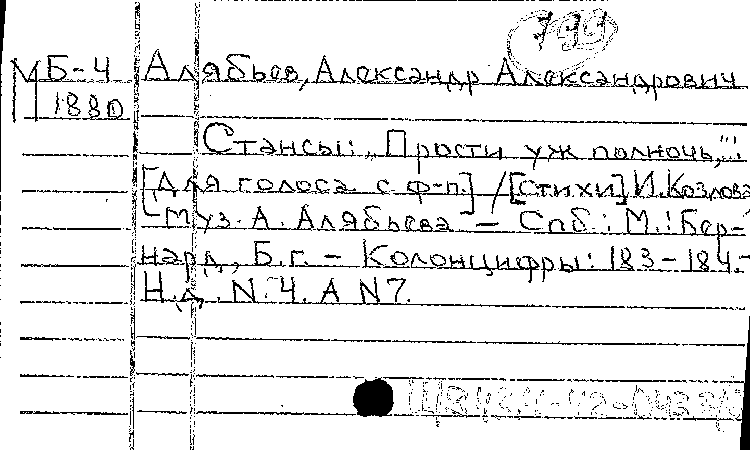 799
МБ-4 Алябьев, Александр Александрович
1880
Стансы: „Прости уж полночь,"!
[Для голоса с ф-п.] / [стихи] И. Козлова
муз. А. Алябьева - Спб.: М.: Бер-
нард, Б.г. - Колонцифры: 183-184.-
Н.д. N. 4. А N 7.